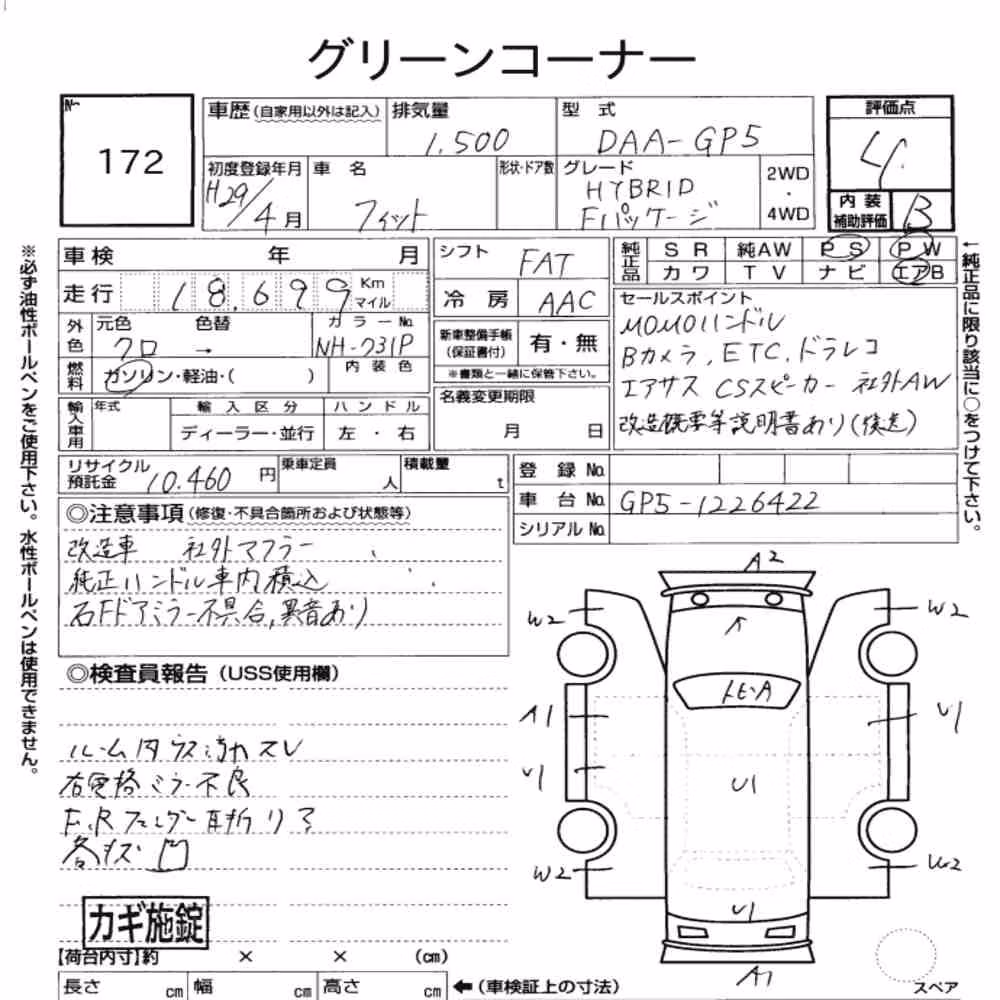 グリーンコーナー
No
172
車歴(自家用以外は記入)
排気量
1.500
型式
DAA-GP5
評価点
4.
初度登録年月
H29/4月
車名
フィット
形状・ドア数
グレード
HYBRID
Fパッケージ
2WD
・
4WD
内装
補助評価
B
車検 年 月
走行 18.699 Km
マイル
外色
元色 色替 カラーNo.
クロ → NH-731P
燃料
ガソリン・軽油・( )
内装色
輸入車用
年式
輸入区分
ハンドル
ディーラー・並行
左・右
シフト
FAT
冷房
AAC
新車整備手帳
(保証書付)
有・無
※書類と一緒に保管下さい。
名義変更期限
月 日
純正品
SR 純AW PS PW
カワ TV ナビ エアB
セールスポイント
MOMOハンドル
Bカメラ, ETC, ドラレコ
エアサス CSスピーカー 社外AW
改造概要等説明書あり(後送)
←純正品に限り該当に○をつけて下さい。
※必ず油性ボールペンをご使用下さい。水性ボールペンは使用できません。
リサイクル
預託金
10.460円
乗車定員
人
積載量
t
登録No.
車台No. GP5-1226422
シリアルNo.
◎注意事項(修復・不具合箇所および状態等)
改造車 社外マフラー
純正ハンドル車内積込
右Fドアミラー不具合,異音あり
◎検査員報告(USS使用欄)
ルーム内ウス汚れスレ
右電格ミラー不良
F,Rフェンダー耳折リア
各キズ凹
A2
W2
W2
トビ-A
A1
U1
U1
U1
W2
W2
U1
A1
カギ施錠
【荷台内寸】約 × × (cm)
長さ cm 幅 cm 高さ cm
←(車検証上の寸法)
スペア